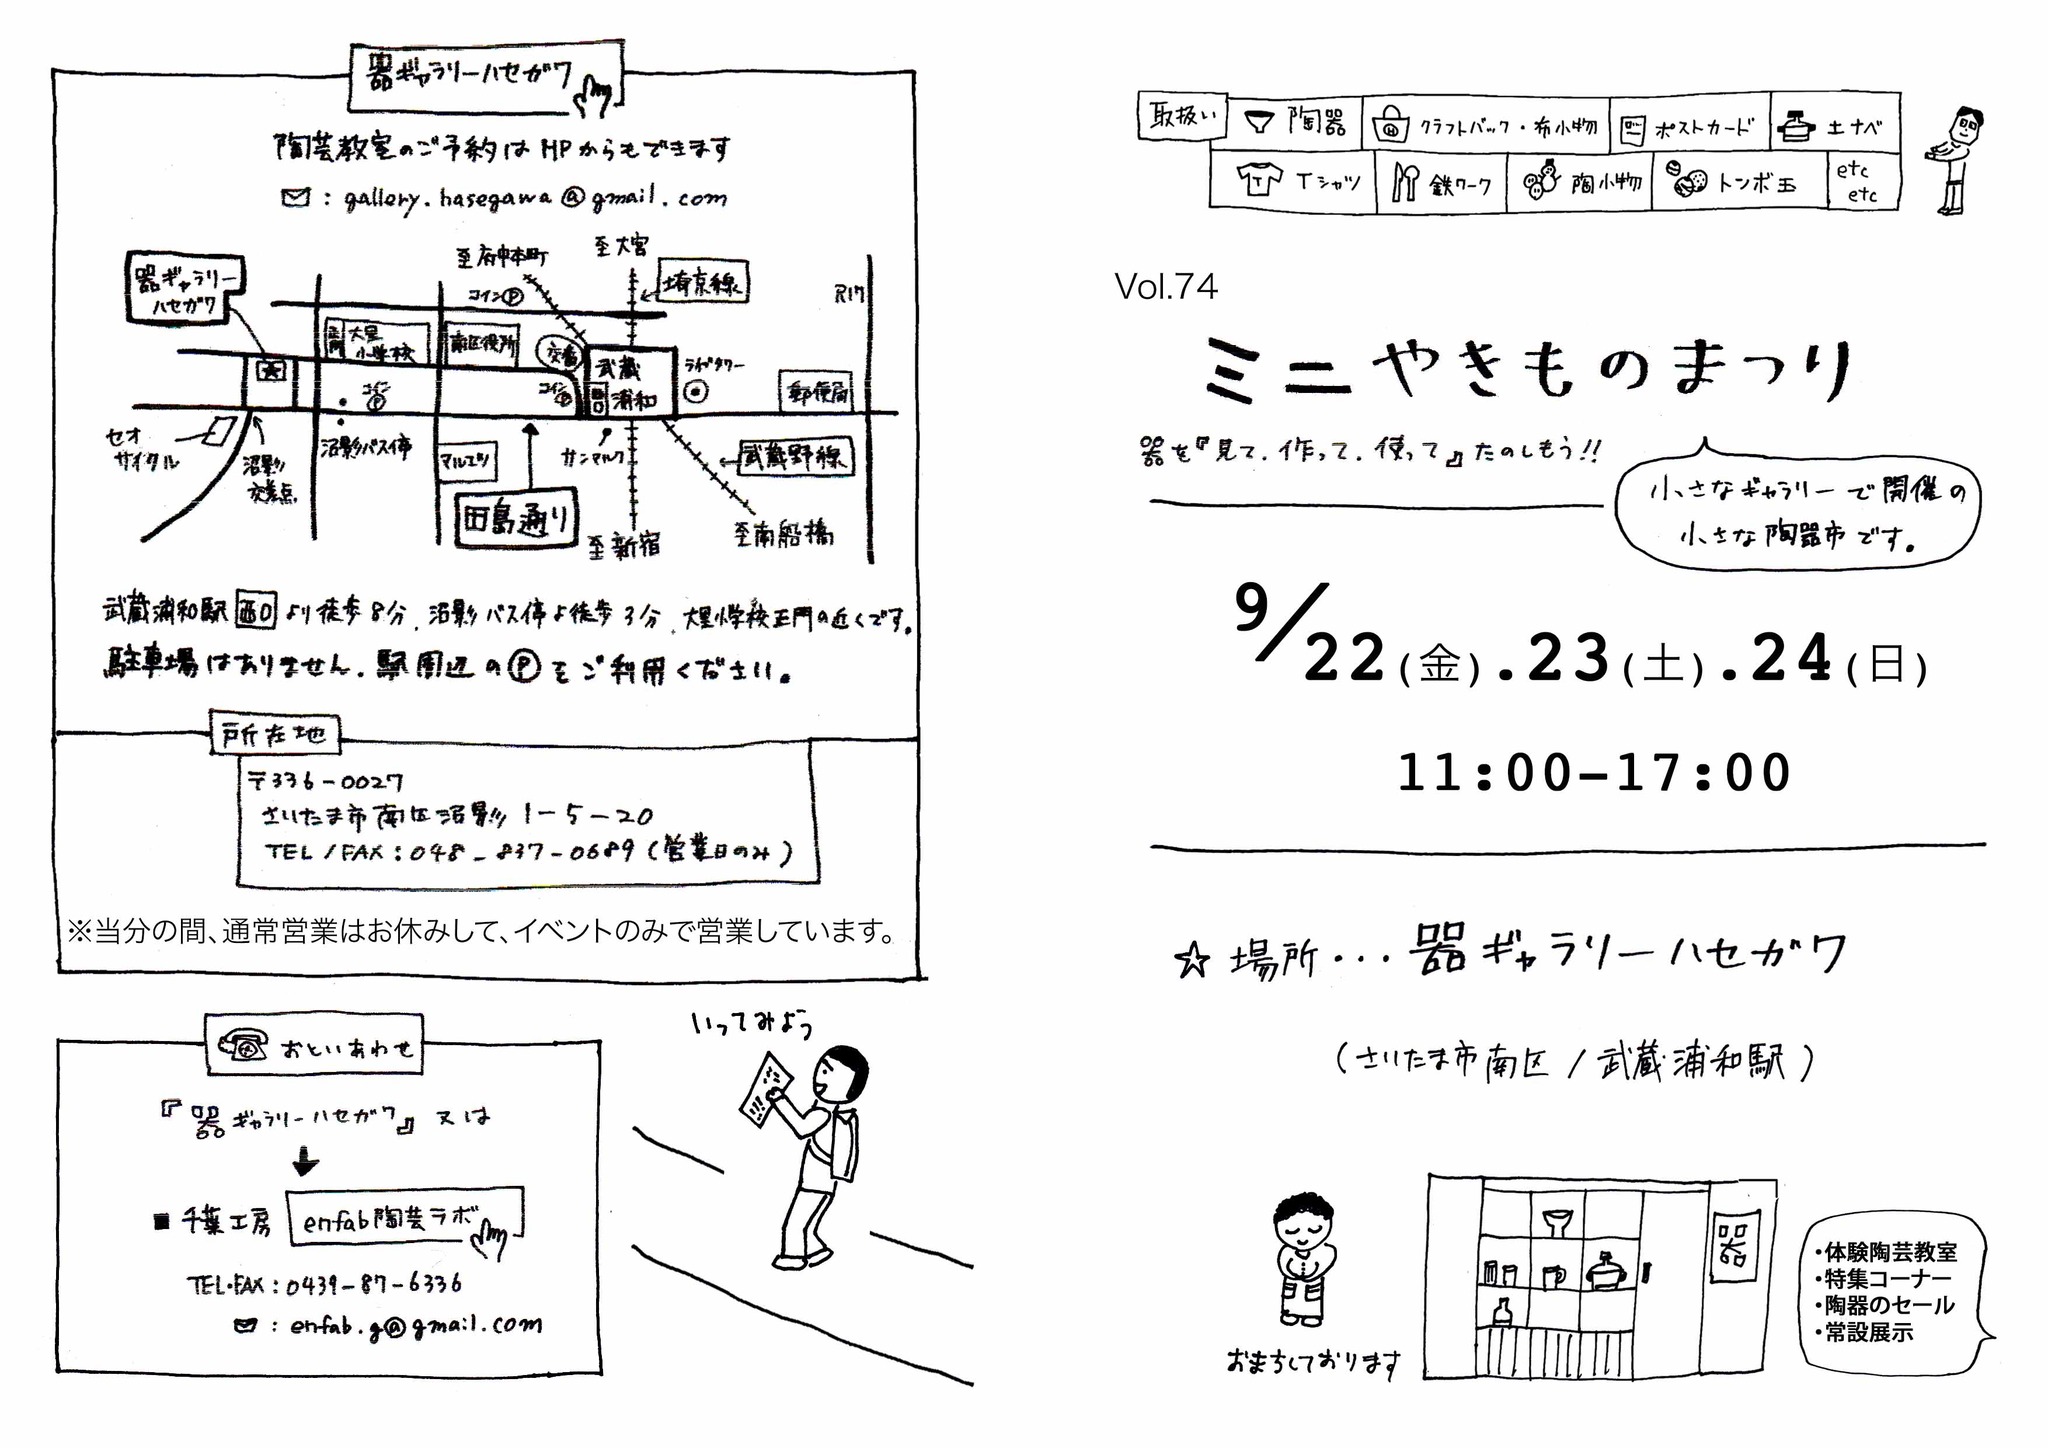 器ギャラリーハセガワ
陶芸教室のご予約はHPからもできます
: gallery.hasegawa@gmail.com
至大宮
至府中本町
埼京線
器ギャラリー
ハセガワ
コインⓅ
R17
正門
大里
小学校
南区役所
交番
武蔵
浦和
西口
ラムザタワー
郵便局
コイン
Ⓟ
コイン
Ⓟ
セオ
サイクル
沼影
交差点
沼影バス停
マルエツ
サンマルク
武蔵野線
田島通り
至新宿
至南船橋
武蔵浦和駅 西口 より徒歩8分、沼影バス停より徒歩3分、大里小学校正門の近くです。
駐車場はありません。駅周辺のⓅをご利用ください。
所在地
〒336-0027
さいたま市南区沼影1-5-20
TEL/FAX:048-837-0689(営業日のみ)
※当分の間、通常営業はお休みして、イベントのみで営業しています。
おといあわせ
『器ギャラリーハセガワ』又は
■千葉工房 enfab陶芸ラボ
TEL・FAX:0439-87-6336
: enfab.g@gmail.com
いってみよう
取扱い
陶器
クラフトバック・布小物
ポストカード
土ナベ
T
Tシャツ
鉄ワーク
陶小物
トンボ玉
etc
etc
Vol.74
ミニやきものまつり
器を『見て.作って.使って』たのしもう!!
小さなギャラリーで開催の
小さな陶器市です。
9/22(金).23(土).24(日)
11:00-17:00
☆場所・・・器ギャラリーハセガワ
(さいたま市南区/武蔵浦和駅)
おまちしております
器
・体験陶芸教室
・特集コーナー
・陶器のセール
・常設展示